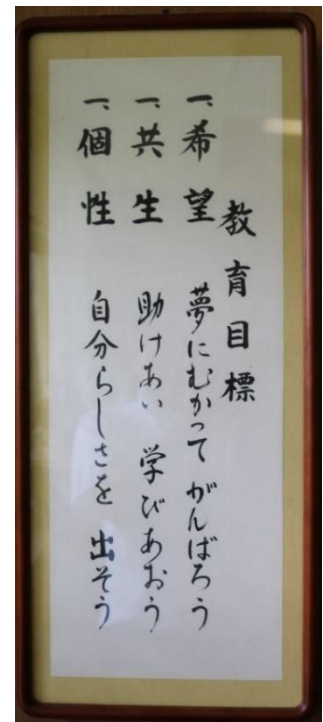 教育目標
一、希望 夢にむかって がんばろう
一、共生 助けあい 学びあおう
一、個性 自分らしさを 出そう